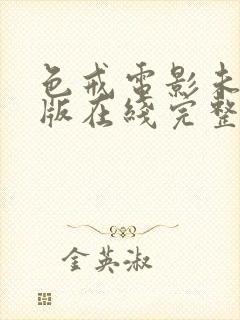 色戒电影未
版在线完整
金英淑